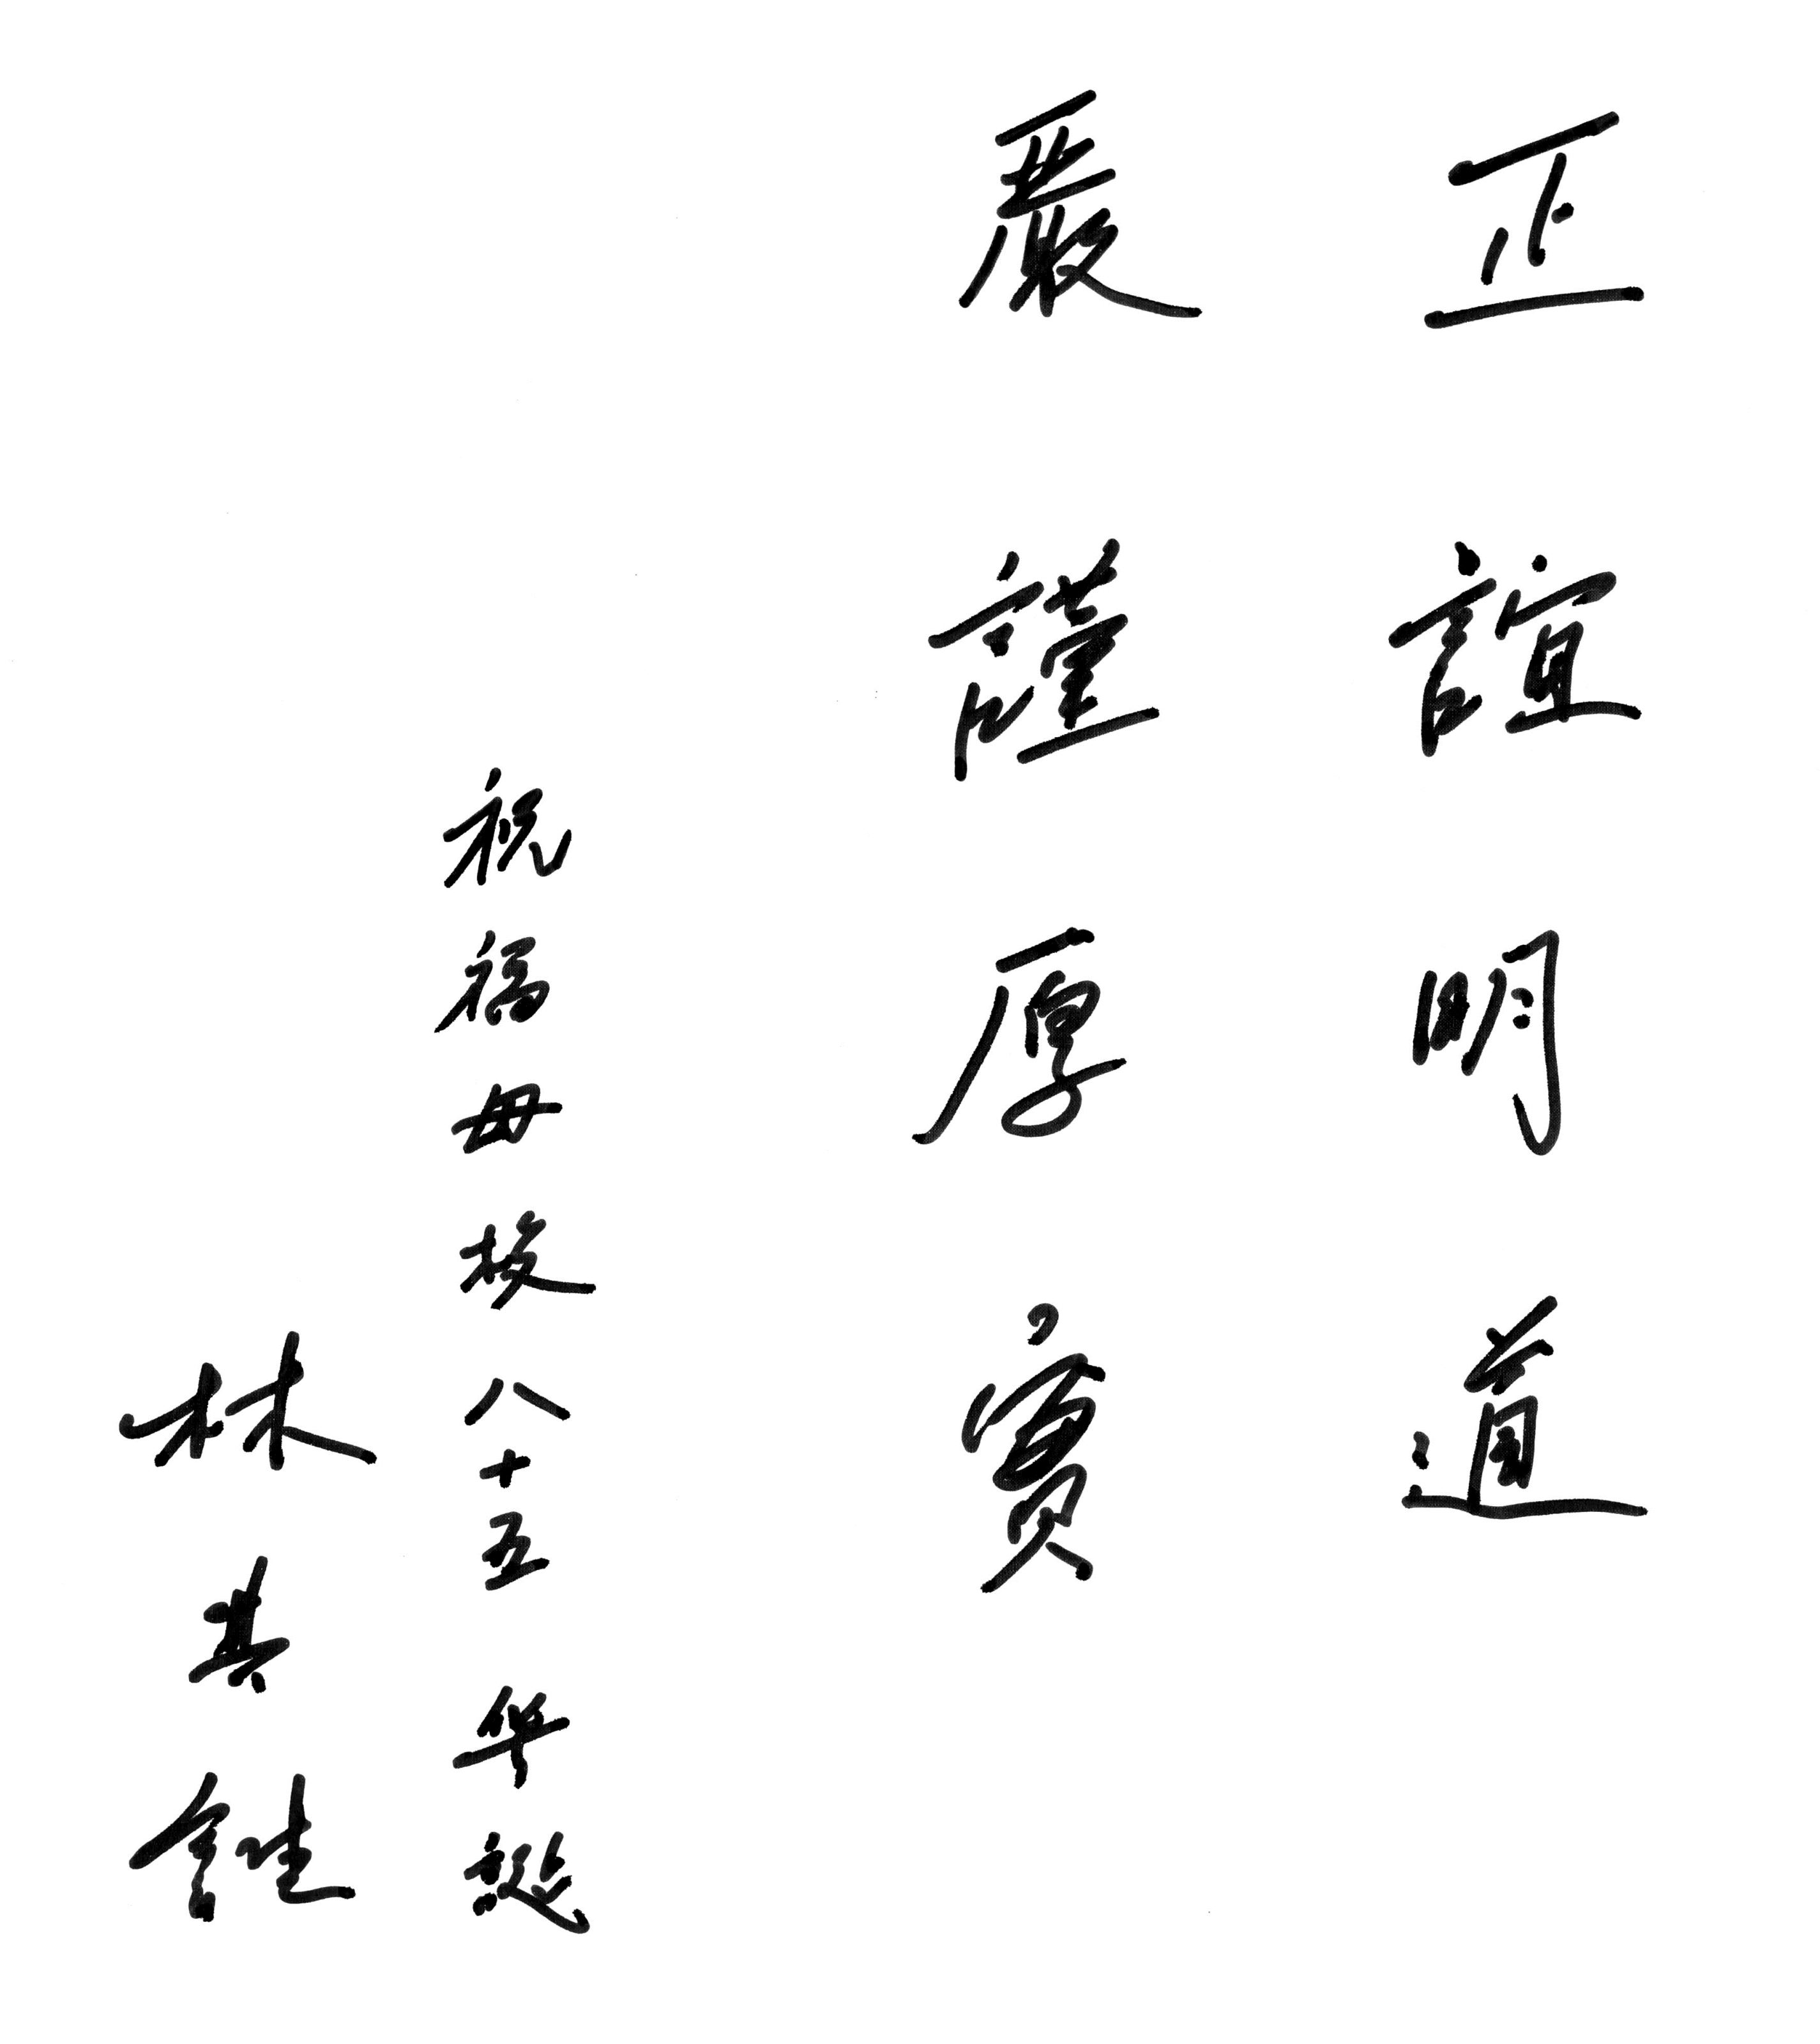 正誼明道
嚴謹厚實
祝福母校八十五华誕
林其錟